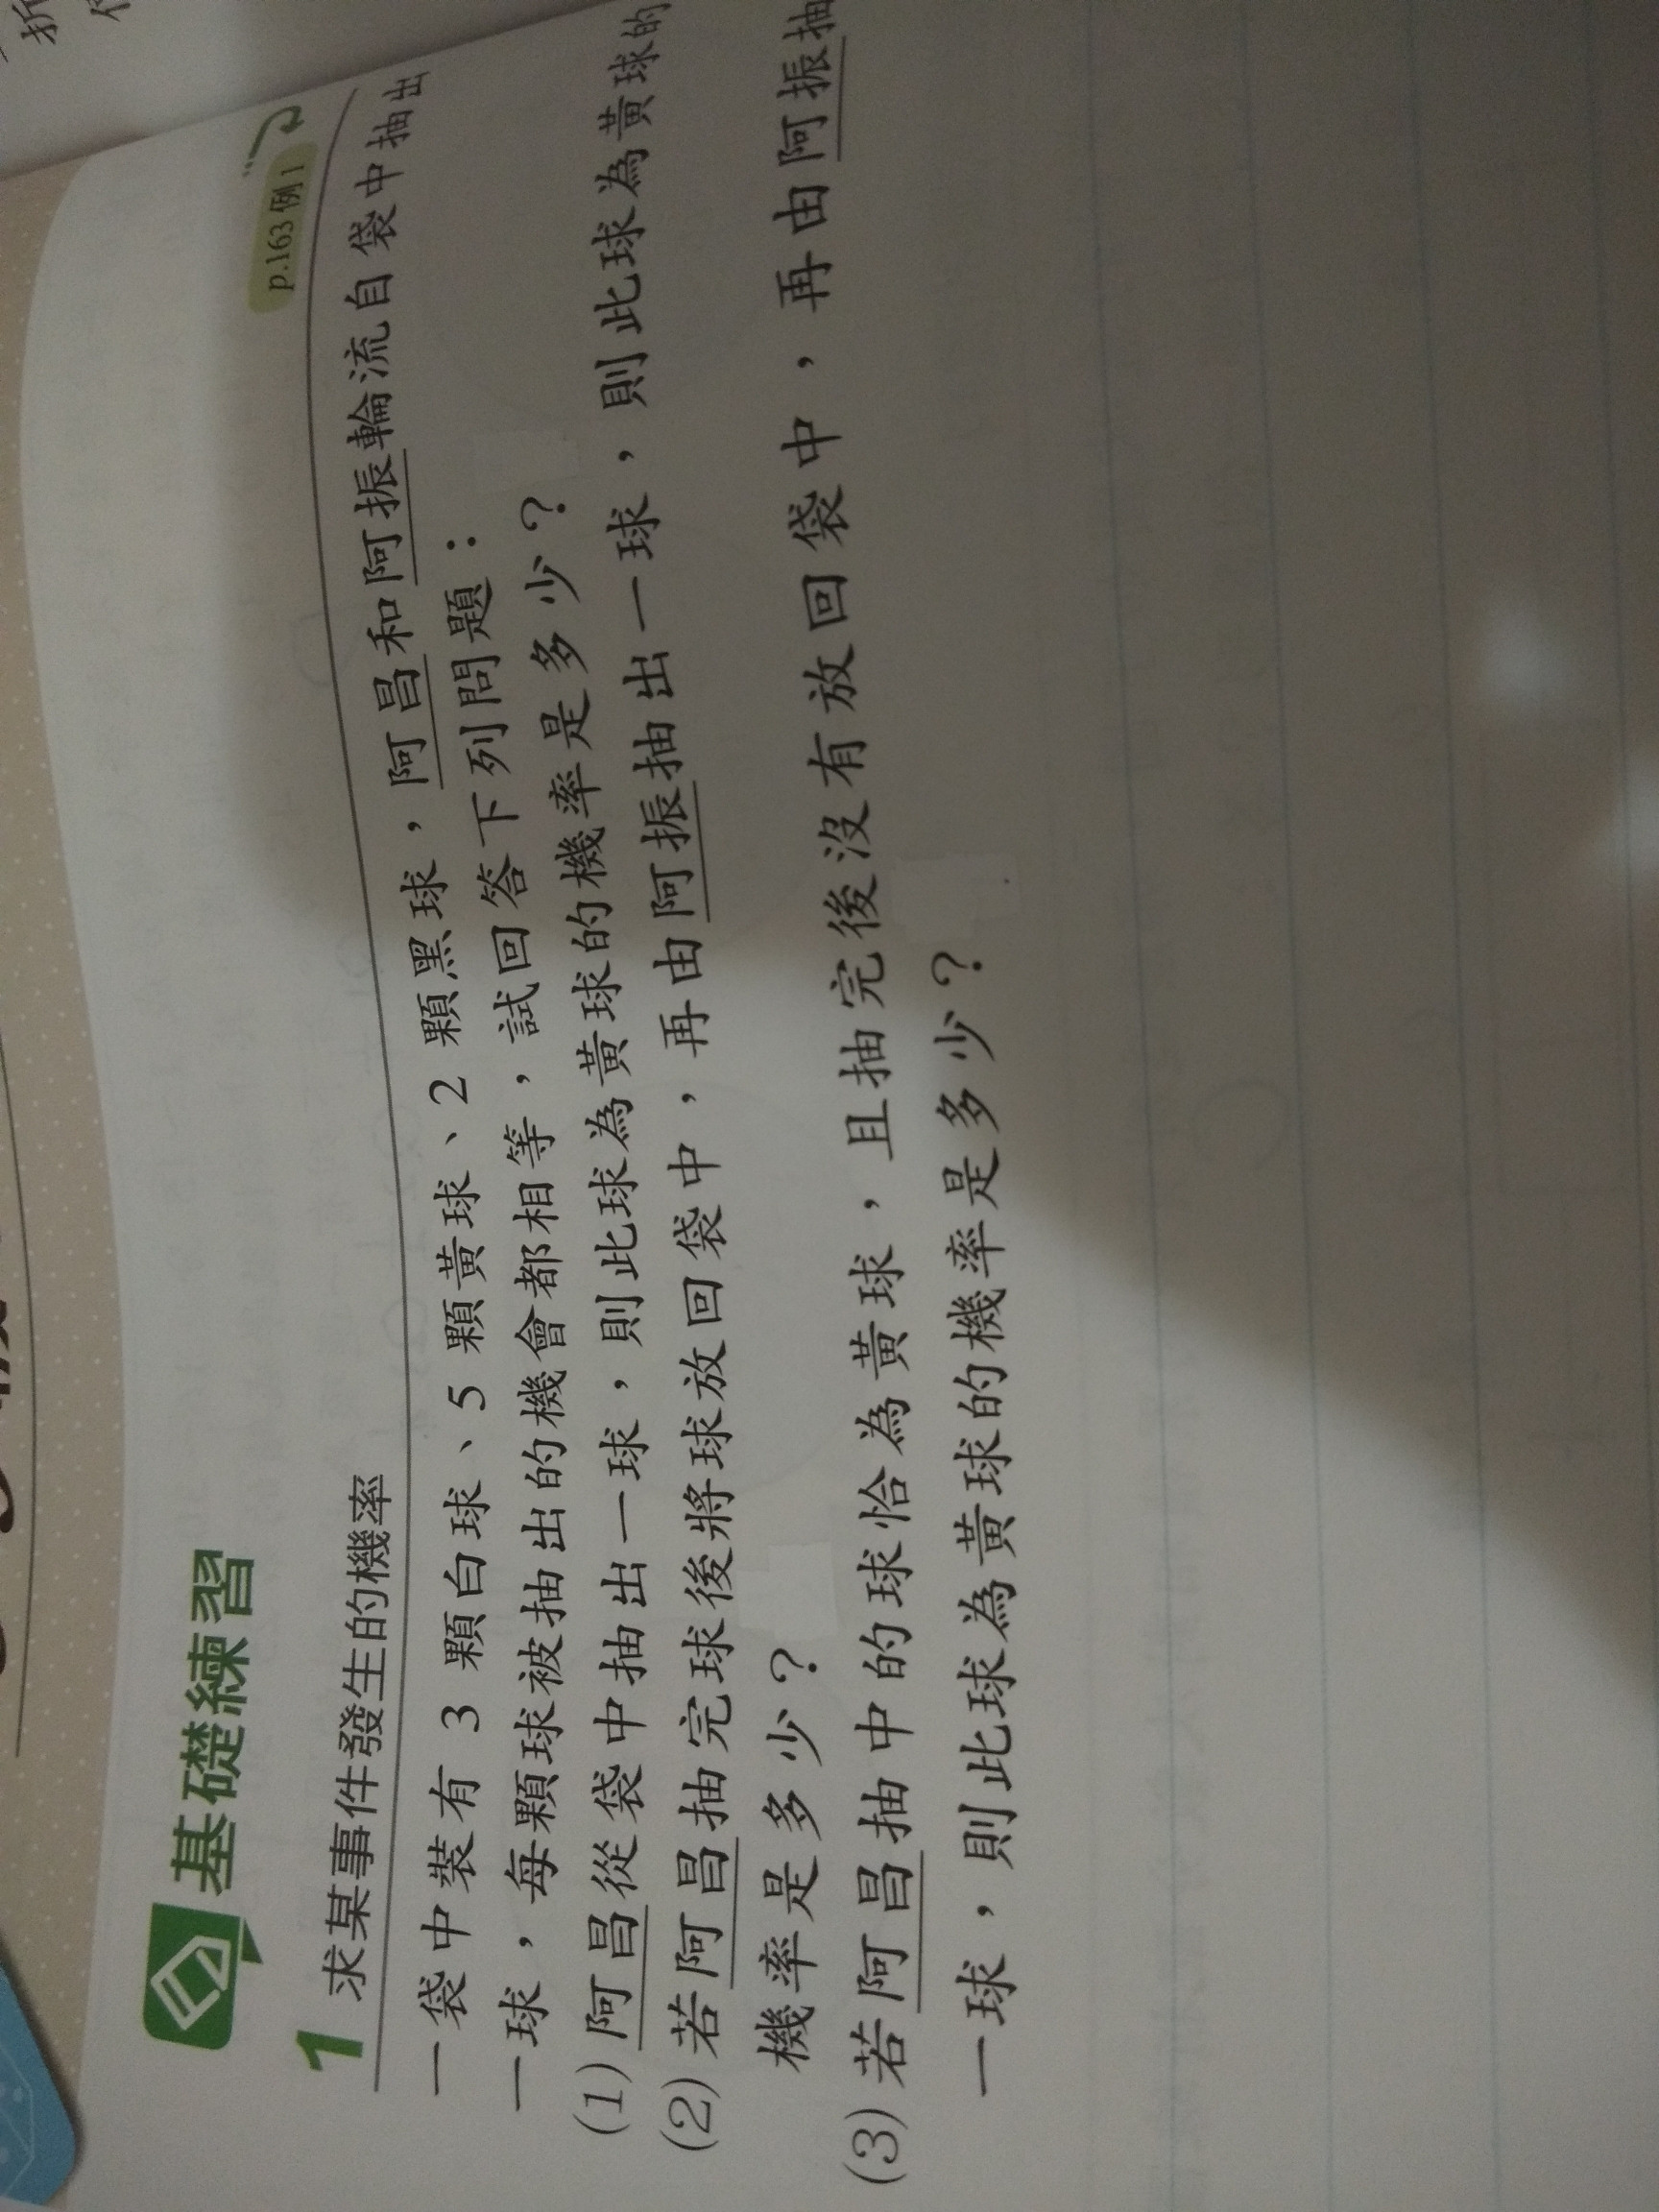 基礎練習
1 求某事件發生的機率
p.163 例 1
一袋中裝有 3 顆白球、5 顆黃球、2 顆黑球，阿昌和阿振輪流自袋中抽出
一球，每顆球被抽出的機會都相等，試回答下列問題：
(1) 阿昌從袋中抽出一球，則此球為黃球的機率是多少？
(2) 若阿昌抽完球後將球放回袋中，再由阿振抽出一球，則此球為黃球的
機率是多少？
(3) 若阿昌抽中的球恰為黃球，且抽完後沒有放回袋中，再由阿振抽
一球，則此球為黃球的機率是多少？